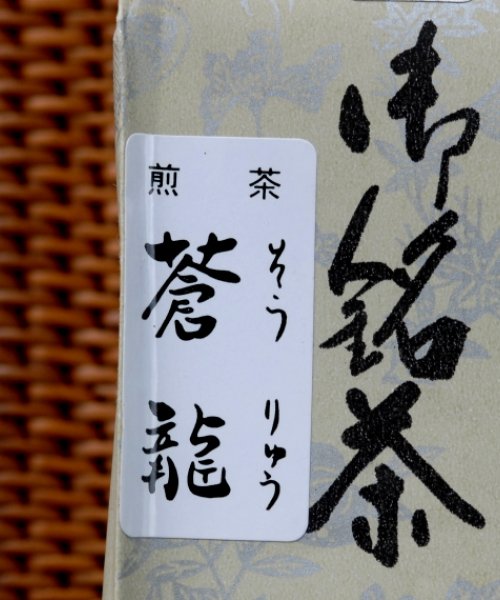 御銘茶
煎茶
そうりゅう
蒼龍